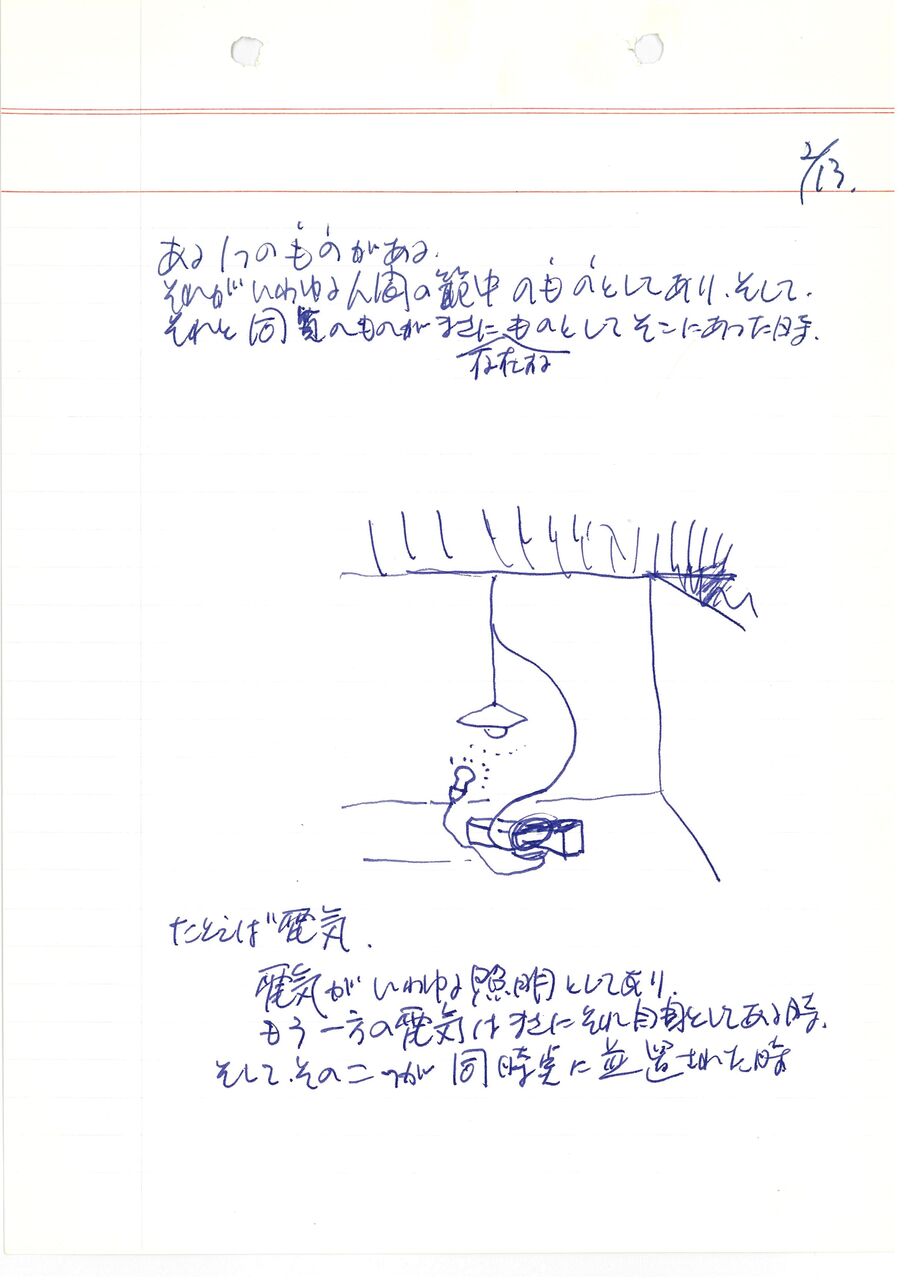 2/13.
ある1つのものがある.
それがいわゆる人間の範中のものとしてあり.そして.
それと同質のものがまさにものとしてそこにあった時.
存在する
たとえば電気.
電気がいわゆる照明としてあり.
もう一方の電気はまさにそれ自身としてある時.
そして.その二つが同時点に並置された時